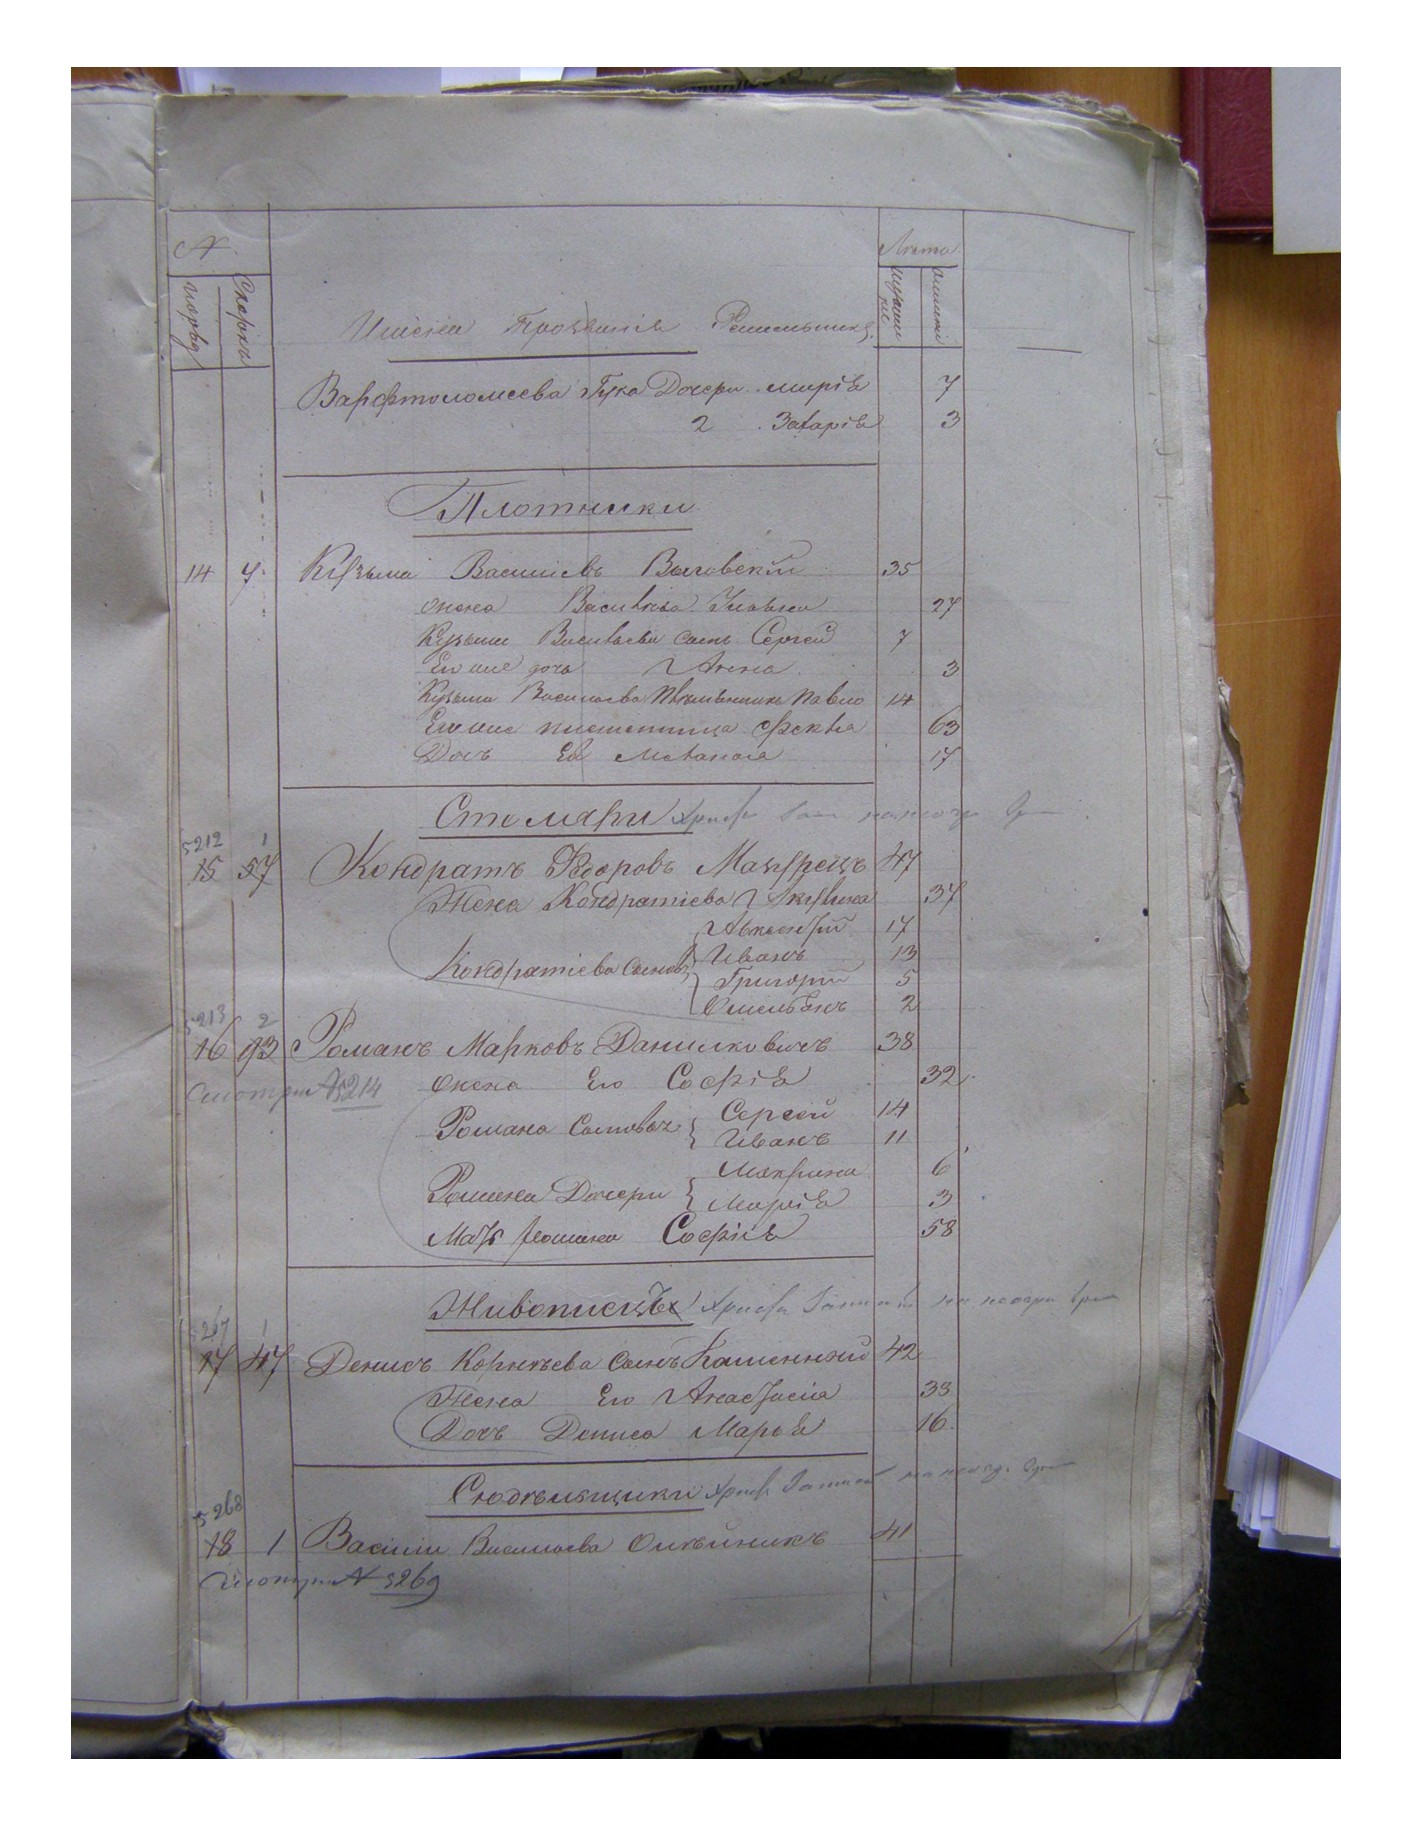 №
Лѣта
Имена Прозванія Ремесленик
Варфтоломеева Гука Дочери Марія 7
2 Захарія 3
Плотники
14 7 Кузьма Васильевъ Выговскій 35
жена Васильева Ульяна 27
Кузьми Васильева сынъ Сергей 7
Его же дочь Анна 3
Кузьма Васильева племянникъ Павло 14
Его же Фекла 63
Дочь Ея Меланія 17
Столяри
5212 1
15 57 Кондратъ Ѳедоровъ Мазурецъ 47
Жена Кондратіева Акулина 37
Авксентій 17
Кондратіева Сыновя Иванъ 13
Григорій 5
Омельянъ 2
5213 2
16 93 Романъ Марковъ Данилковичъ 38
Смотри № 5214 жена Его Софія 32
Романа Сыновья Сергей 14
Иванъ 11
Романа Дочери Макрина 6
Марія 3
Мать Романа Софія 58
Живописцы
5267 1
17 47 Денисъ Корнѣева Сынъ Каменный 42
Жена Его Анастасія 33
Дочь Дениса Марья 16
5268
18 1 Василій Васильева Олѣйникъ 41
Смотри № 5269